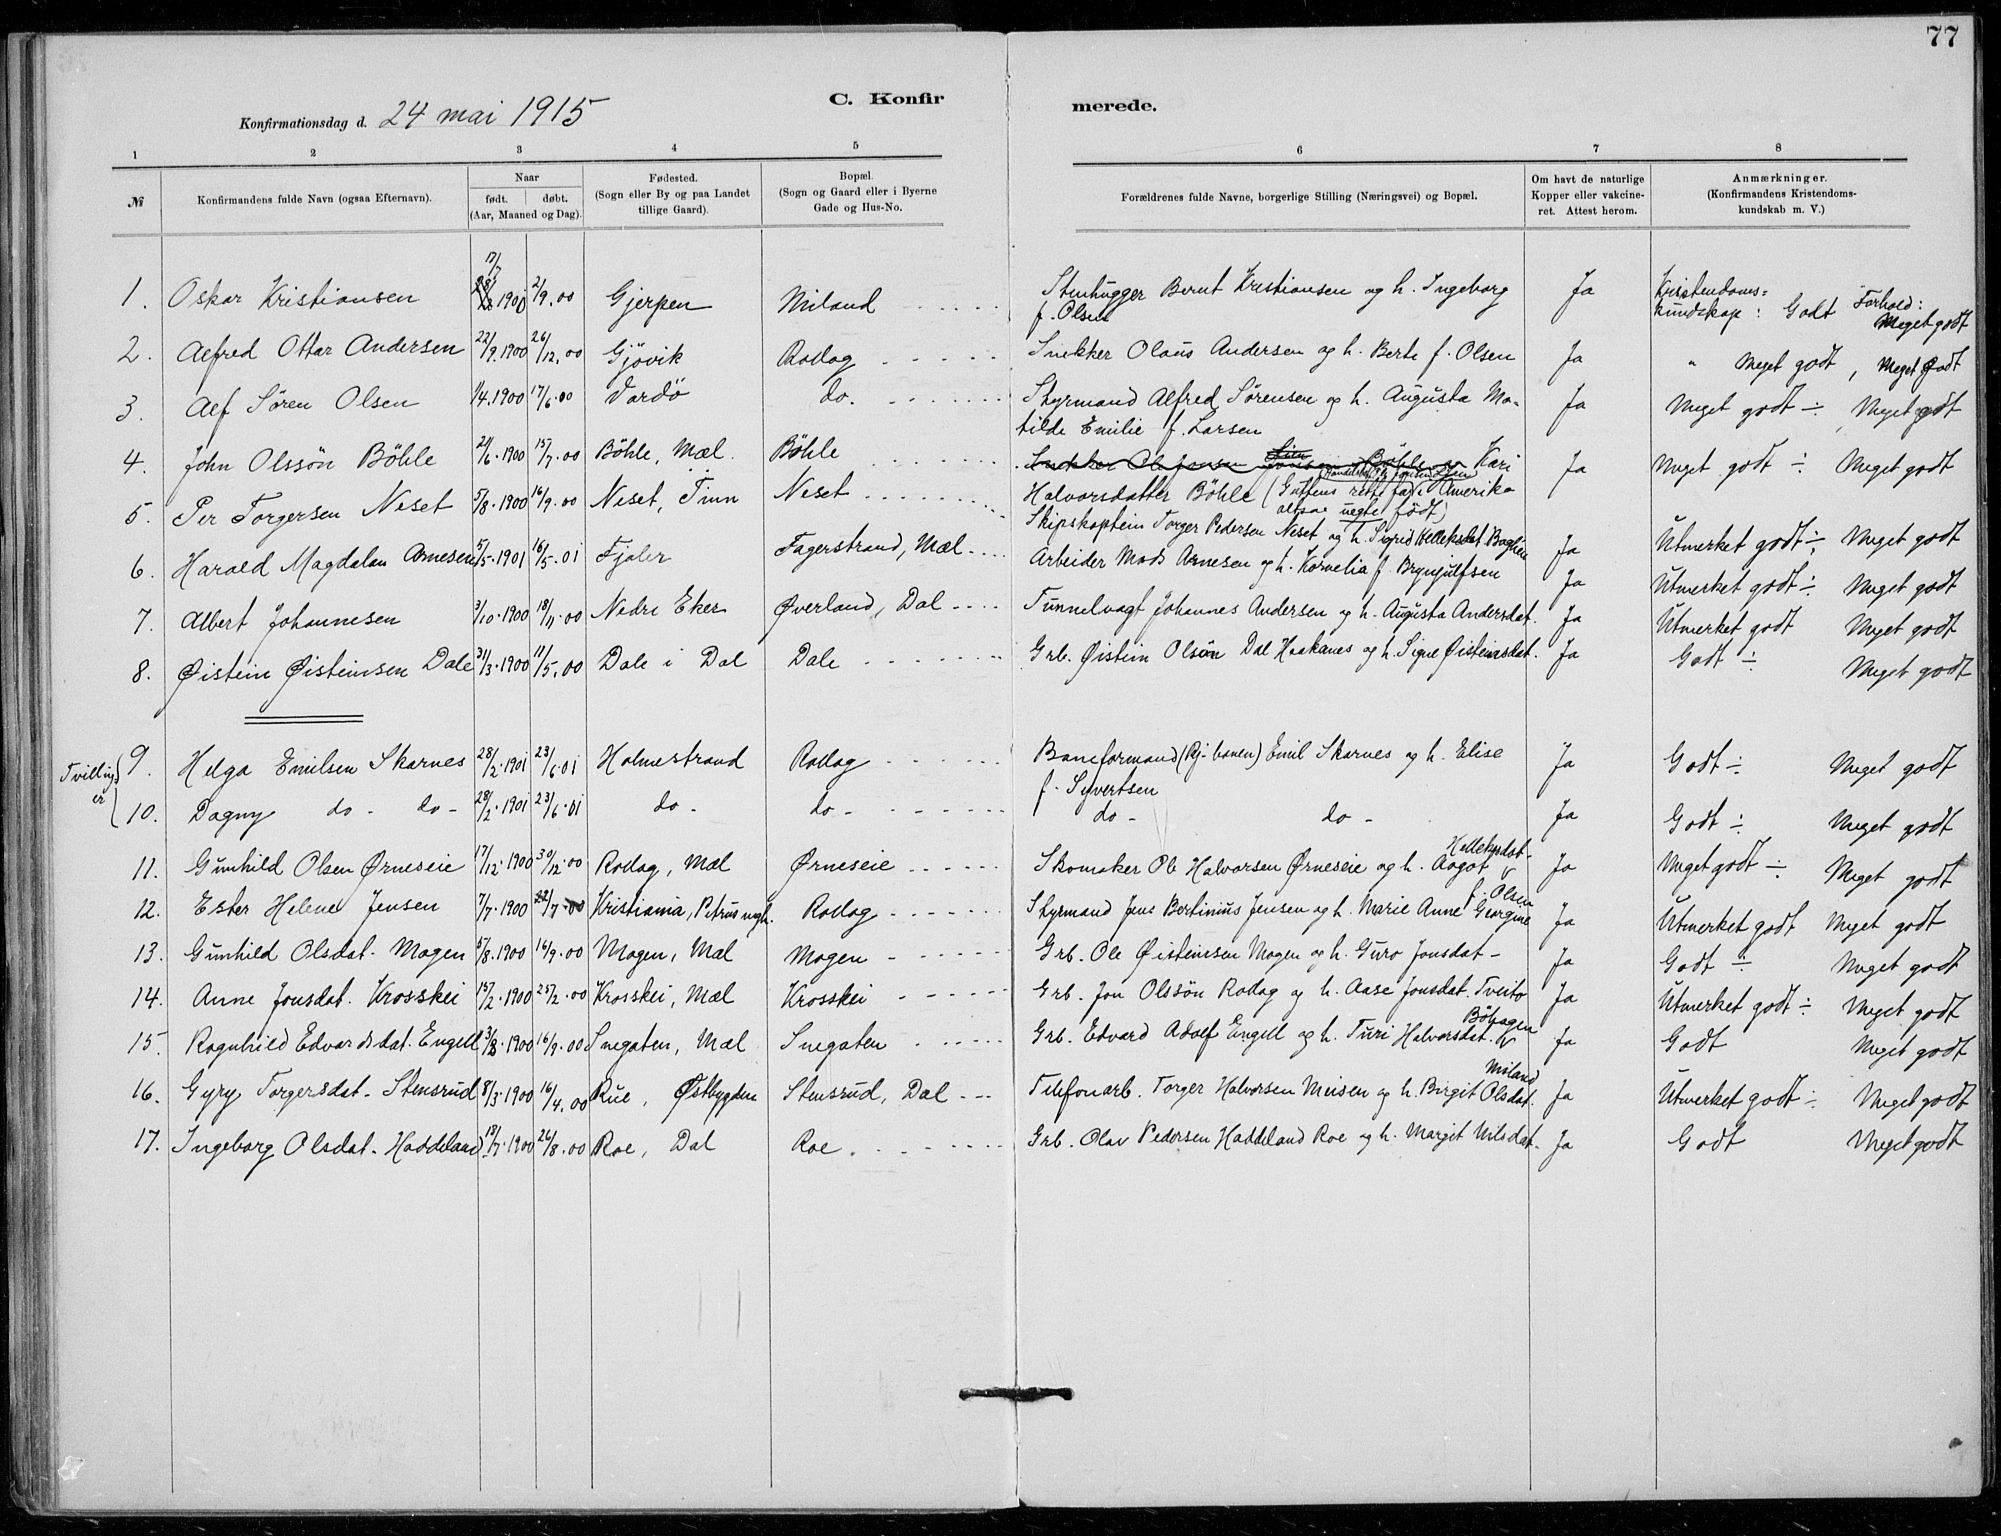 77
C. Konfirmerede.
Konfirmationsdag d. 24 mai 1915
1 2 3 4 5 6 7 8
№ Konfirmandens fulde Navn (ogsaa Efternavn). Naar født. døbt. (Aar, Maaned og Dag). Fødested. (Sogn eller By og paa Landet tillige Gaard). Bopæl. (Sogn og Gaard eller i Byerne Gade og Hus-No. Forældrenes fulde Navne, borgerlige Stilling (Næringsvei) og Bopæl. Om havt de naturlige Kopper eller vakcineret. Attest herom. Anmærkninger. (Konfirmandens Kristendomskundskab m. V.)
1. Oskar Kristiansen 1900 2/9.00 Gjerpen Miland Stenhugger Bernt Kristiansen og h. Ingeborg f. Olsen Ja Kristendoms=kundskap: Godt Forhold: Meget godt
2. Alfred Ottar Andersen 22/9.1900 26/12.00 Gjövik Rollag Snekker Olaus Andersen og h. Berte f. Olsen Ja " Meget godt, Meget godt
3. Alf Sören Olsen 1/4.1900 17/6.00 Vardö do. Styrmand Alfred Sörensen og h. Augusta Matilde Emilie f. Larsen Ja Meget godt ÷, Meget godt
4. John Olssön Böhle 21/6.1900 15/7.00 Böhle, Mæl. Böhle Snekker Ole Jonsen Böhle og Kari Halvorsdatter Böhle (Guttens rette far i Amerika altsaa uegte födt) Ja Meget godt ÷ Meget godt
5. Per Torgersen Neset 5/8.1900 16/9.00 Neset, Tinn Neset Skipskaptein Torger Pedersen Neset og h. Sigrid Helleksdat Ja Utmerket godt ÷ Meget godt
6. Harald Magdalon Arnesen 5/5.1901 16/5.01 Fjaler Fagerstrand, Mæl Arbeider Mads Arnesen og h. Kornelia f. Brynjulfsen Ja Utmerket godt ÷ Meget godt
7. Albert Johannesen 3/10.1900 18/11.00 Nedre Eker Øverland, Dal Tunnelvagt Johannes Andersen og h. Augusta Andersdat. Ja Utmerket godt Meget godt
8. Øistein Øisteinsen Dale 31/3.1900 11/5.00 Dale i Dal Dale Grb. Øistein Olsön Dal Haakanes og h. Signe Øisteinsdat. Ja Godt ÷ Meget godt
Tvillinger
9. Helga Emilsen Skarnes 28/2.1901 23/6.01 Holmestrand Rollag Baneformand (Rj-banen) Emil Skarnes og h. Elise f. Syvertsen Ja Godt ÷ Meget godt
10. Dagny do - do - 28/2.1901 23/6.01 do - do - do - do - Ja Godt ÷ Meget godt
11. Gunhild Olsen Ørneseie 17/12.1900 30/12.00 Rollag, Mæl Ørneseie Skomaker Ole Halvorsen Ørneseie og h. Aagot Helleksdat- Ja Meget godt ÷ Meget godt
12. Ester Helene Jensen 7/7.1900 22/7.00 Kristiania, Petrus mgh. Rollag Styrmand Jens Bertinius Jensen og h. Marie Anne Georgine f. Olsen Ja Utmerket godt Meget godt
13. Gunhild Olsdat. Mogen 5/8.1900 16/9.00 Mogen, Mæl Mogen Grb. Ole Øisteinsen Mogen og h. Guro Jonsdat- Ja Godt ÷ Meget godt
14. Anne Jonsdat. Krosskei 15/2.1900 25/2.00 Krosskei, Mæl Krosskei Grb. Jon Olssön Rollag og h. Aase Jonsdat. Tveito Ja Utmerket godt ÷ Meget godt
15. Ragnhild Edvardsdat. Engell 1900 16/9.00 Snegaten, Mæl Snegaten Grb. Edvard Adolf Engell og h. Turi Halvorsdat. Böhagen Ja Godt Meget godt
16. Gyry Torgersdat. Stensrud 8/3.1900 16/4.00 Rue, Østbygden Stensrud, Dal Telefonarb. Torger Halvorsen Meisen og h. Birgit Olsdat. Miland Ja Utmerket godt ÷ Meget godt
17. Ingeborg Olsdat. Haddeland 1900 26/8.00 Roe, Dal Roe. Grb. Olav Pedersen Haddeland Roe og h. Margit Nilsdat. Ja Godt Meget godt